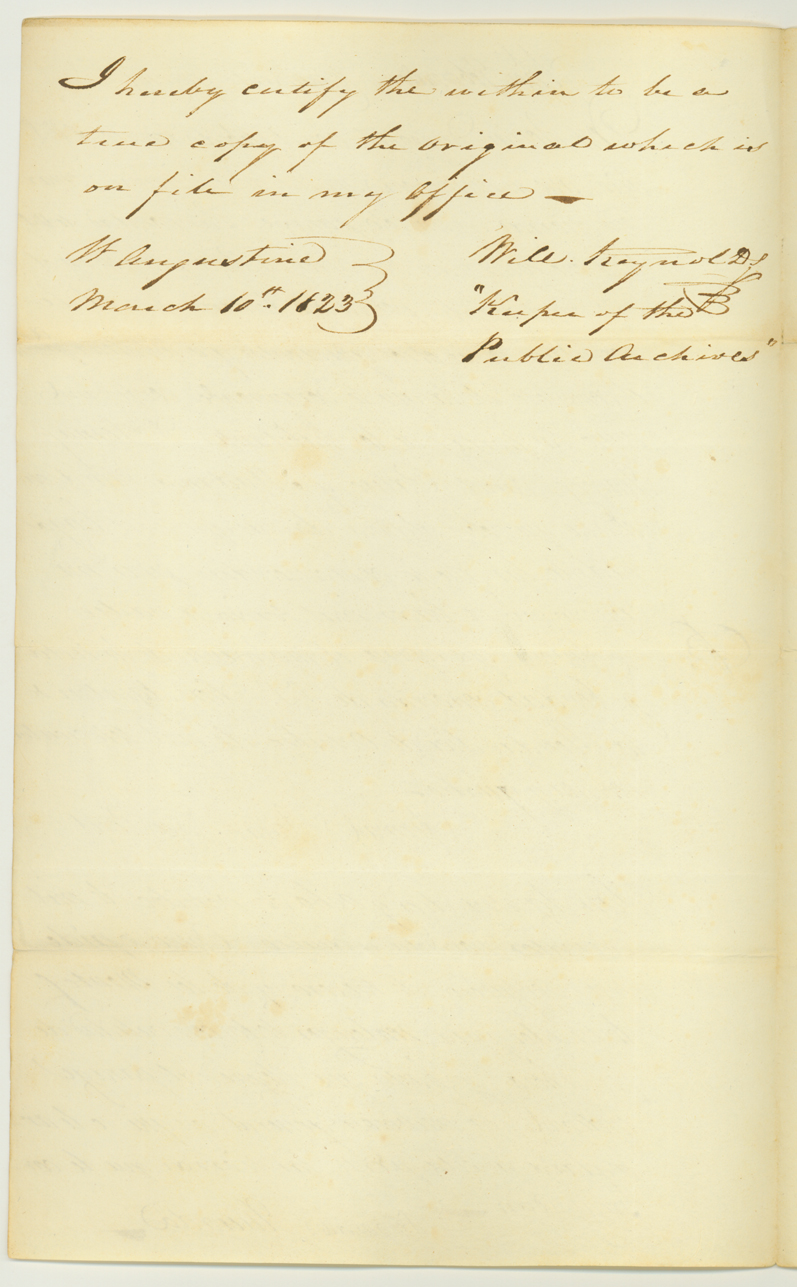 I hereby certify the within to be a
true copy of the original which is
on file in my office —
St Augustine
March 10th. 1823
Will. Reynolds
"Keeper of the
Public Archives"